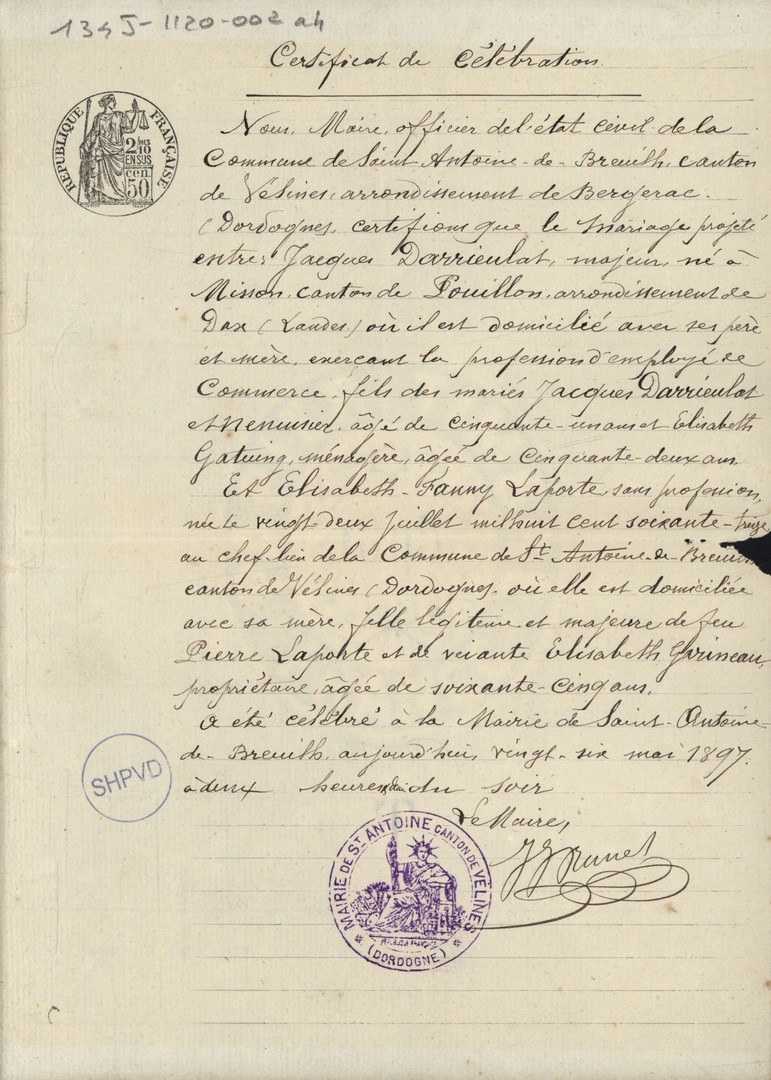 134 J-1120-002 a4
Certificat de Célébration
RÉPUBLIQUE FRANÇAISE
2/10
EN SUS
cen.
50
Nous, Maire, officier de l'état civil de la
Commune de Saint-Antoine-de-Breuilh, canton
de Vélines, arrondissement de Bergerac.
(Dordogne, certifions que le mariage projeté
entre, Jacques Darrieulat, majeur, né à
Misson, canton de Pouillon, arrondissement de
Dax (Landes,) où il est domicilié avec ses père
et mère, exerçant la profession d'employé de
Commerce, fils des mariés Jacques Darrieulat
et Menuisier, âgé de cinquante-un ans et Elisabeth
Gatuing, ménagère, âgée de cinquante-deux ans.
Et Elisabeth-Fanny Laporte sans profession,
née le vingt-deux juillet mil huit cent soixante-treize
au chef-lieu de la Commune de St Antoine-de-Breuilh
canton de Vélines (Dordogne, où elle est domiciliée
avec sa mère, fille légitime et majeure de feu
Pierre Laporte et de vivante Elisabeth Gorineau,
propriétaire, âgée de soixante-cinq ans.
a été célébré à la Mairie de Saint-Antoine-
de-Breuilh, aujourd'hui, vingt-six mai 1897.
à deux heures du soir
Le Maire,
SHPVD
MAIRIE DE ST ANTOINE CANTON DE VELINES
(DORDOGNE)